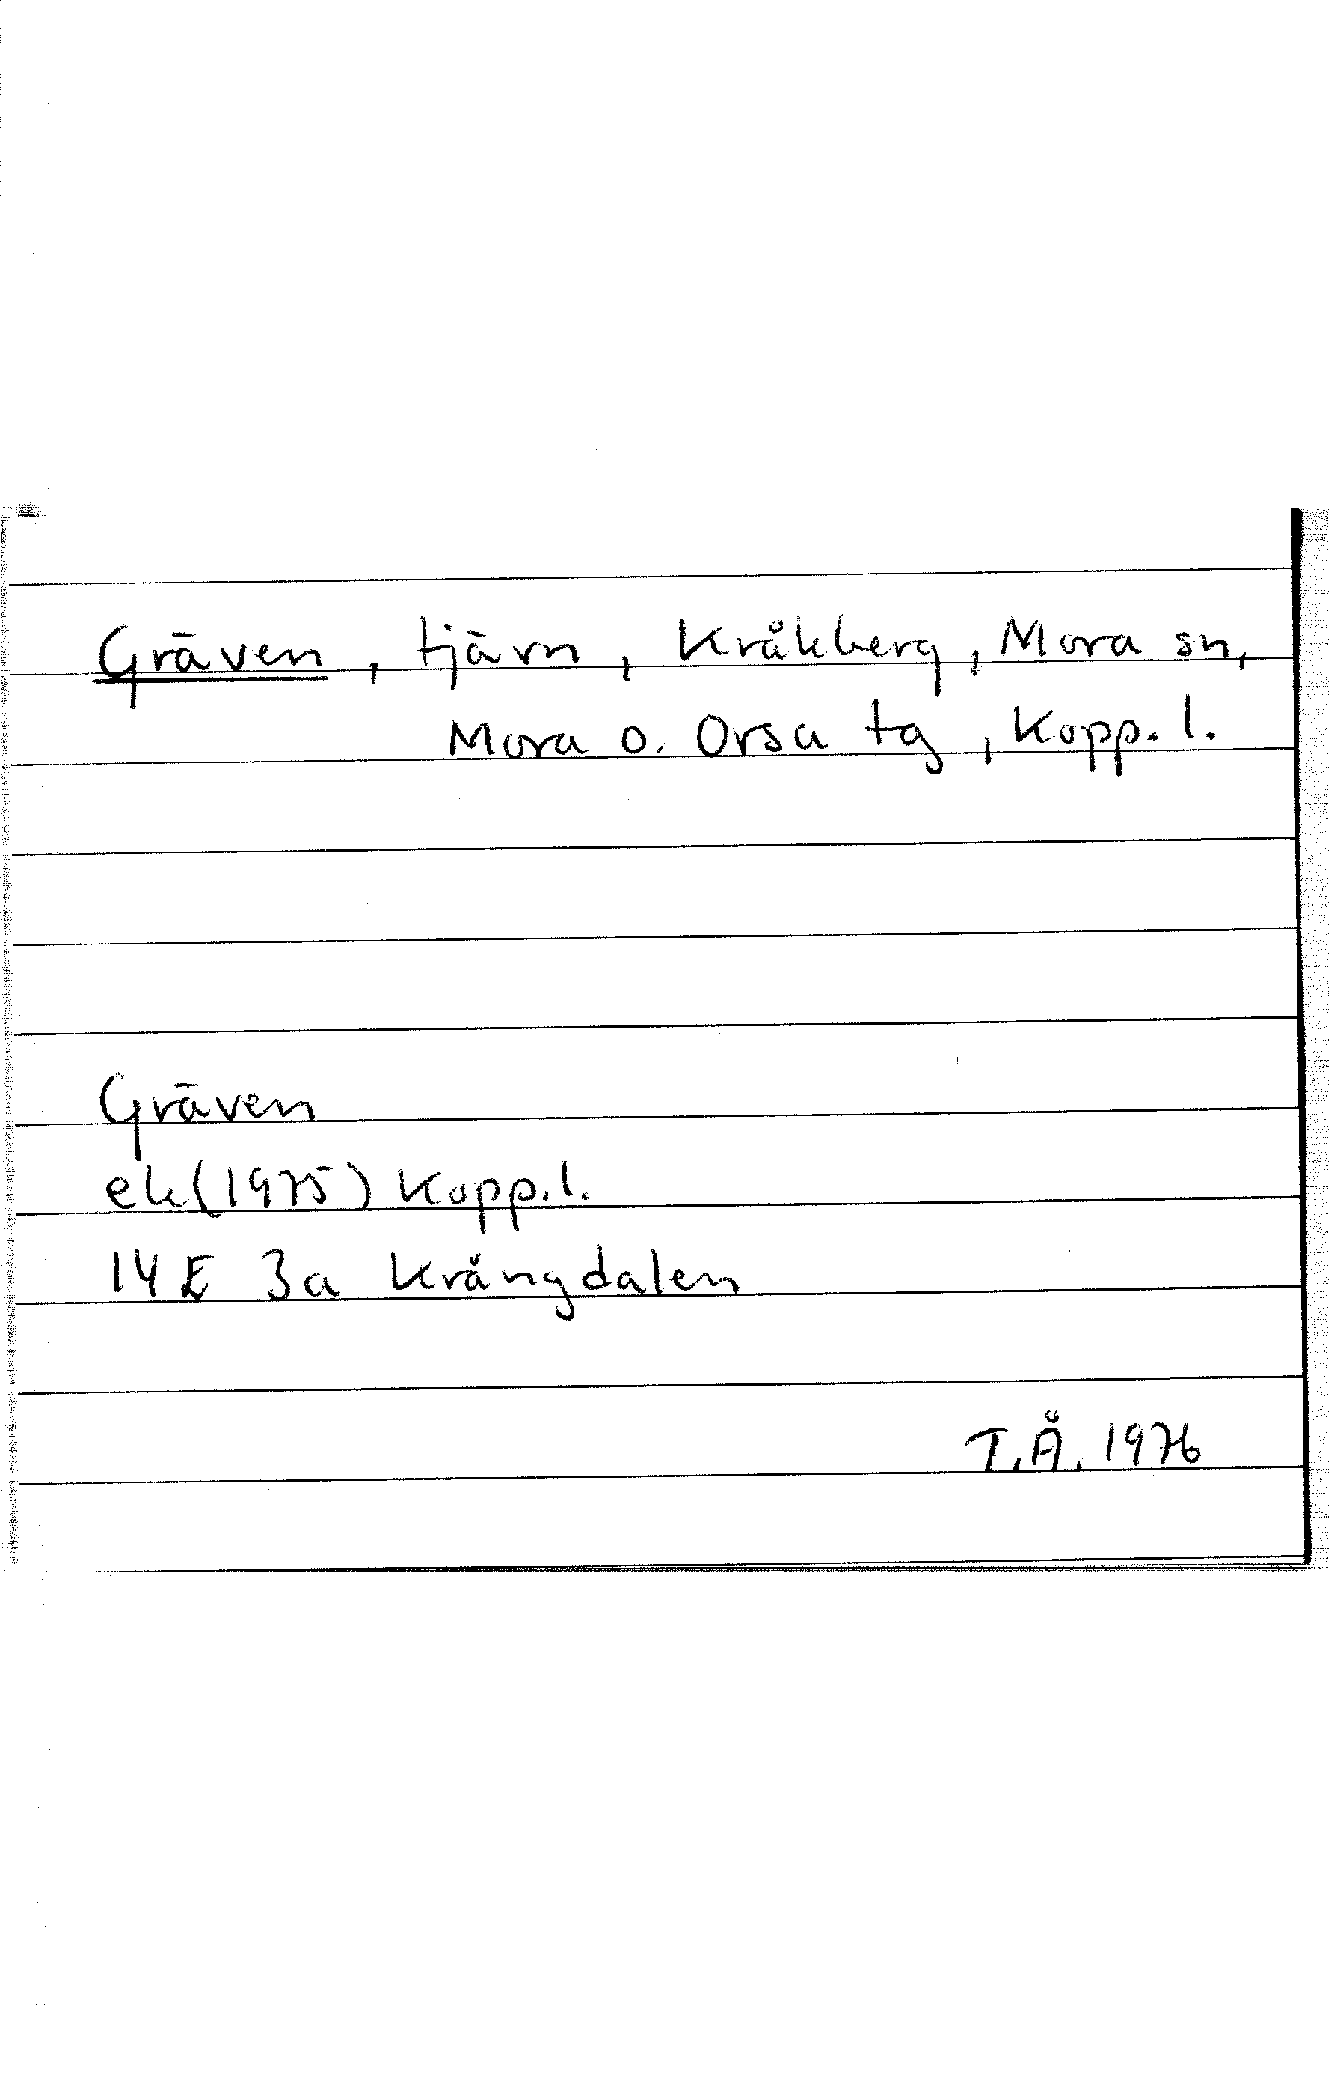 Gräven, tjärn, Kråkberg, Mora sn,
Mora o. Orsa tg, Kopp. l.
Gräven
ek (1975) Kopp. l.
14 E 3a Krångdalen
T.Å. 1976